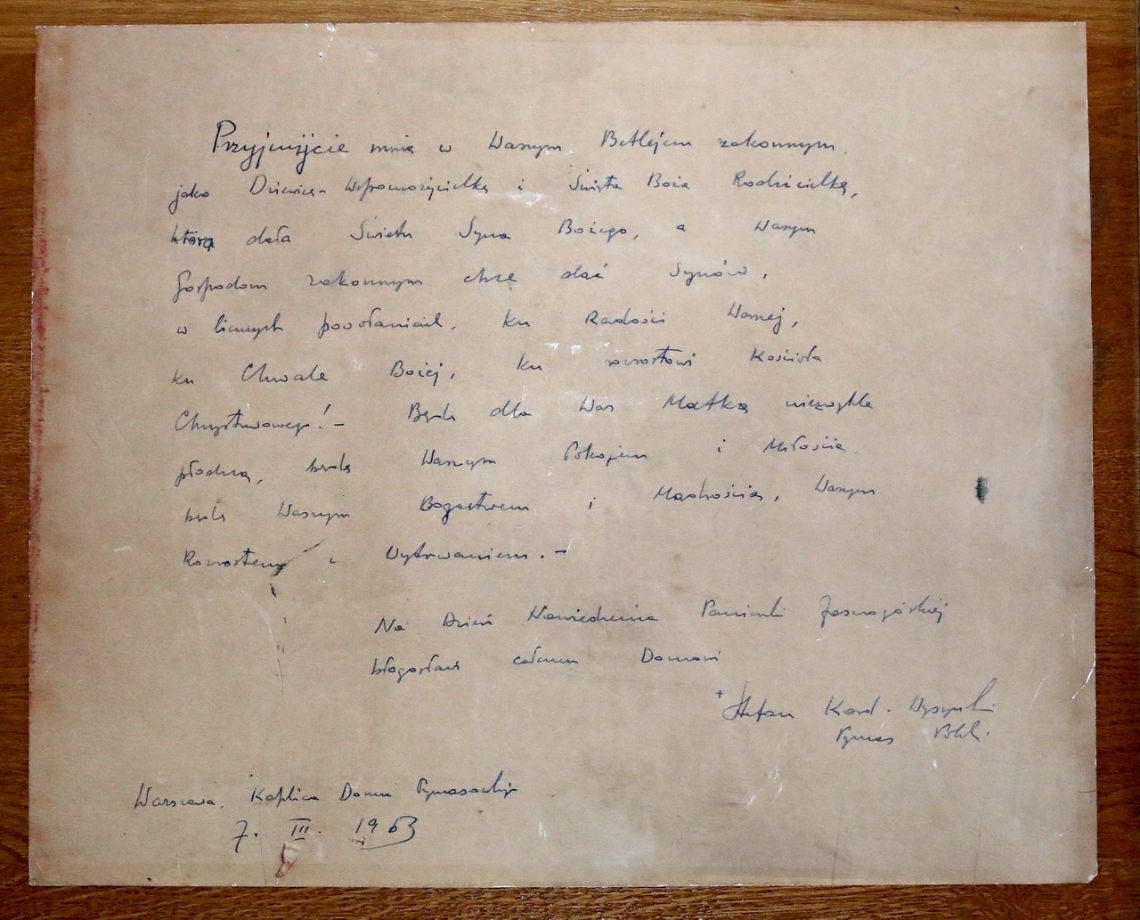 Przyjmijcie mnie w Waszym Betlejem zakonnym,
jako Dziewicę-Wspomożycielkę i Świętą Bożą Rodzicielkę,
która dała Światu Syna Bożego, a Waszym
Gospodom zakonnym chce dać Synów,
w licznych powołaniach, ku Radości Waszej,
ku Chwale Bożej, ku wzrostowi Kościoła
Chrystusowego! – Będę dla Was Matką niezwykle
płodną, będę Waszym Pokojem i Miłością,
będę Waszym Bogactwem i Mądrością, Waszym
Rozrostem i Wytrwaniem. –
Na Dzień Nawiedzenia Panienki Jasnogórskiej
błogosławi całemu Domowi
+ Stefan Kard. Wyszyński
Prymas Polski
Warszawa. Kaplica Domu Prymasowskiego
7. III. 1963